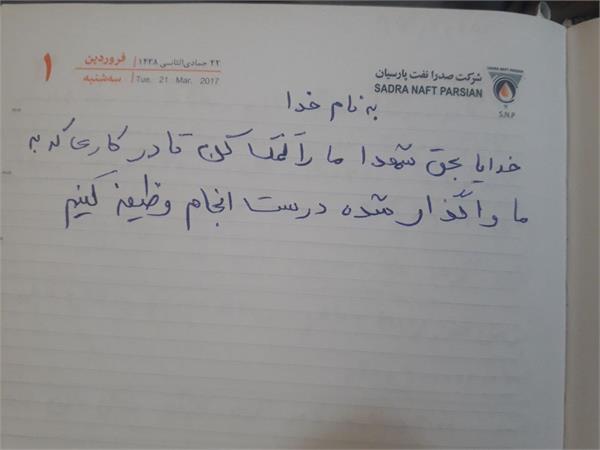 ۱
فروردین
سه‌شنبه
۲۲ جمادی‌الثانی ۱۴۳۸
Tue. 21 Mar. 2017
شرکت صدرا نفت پارسیان
SADRA NAFT PARSIAN
SADRA NAFT PARSIAN
S.N.P
به نام خدا
خدایا بحق شهدا ما را کمک کن تا در کاری که به
ما واگذار شده درست انجام وظیفه کنیم